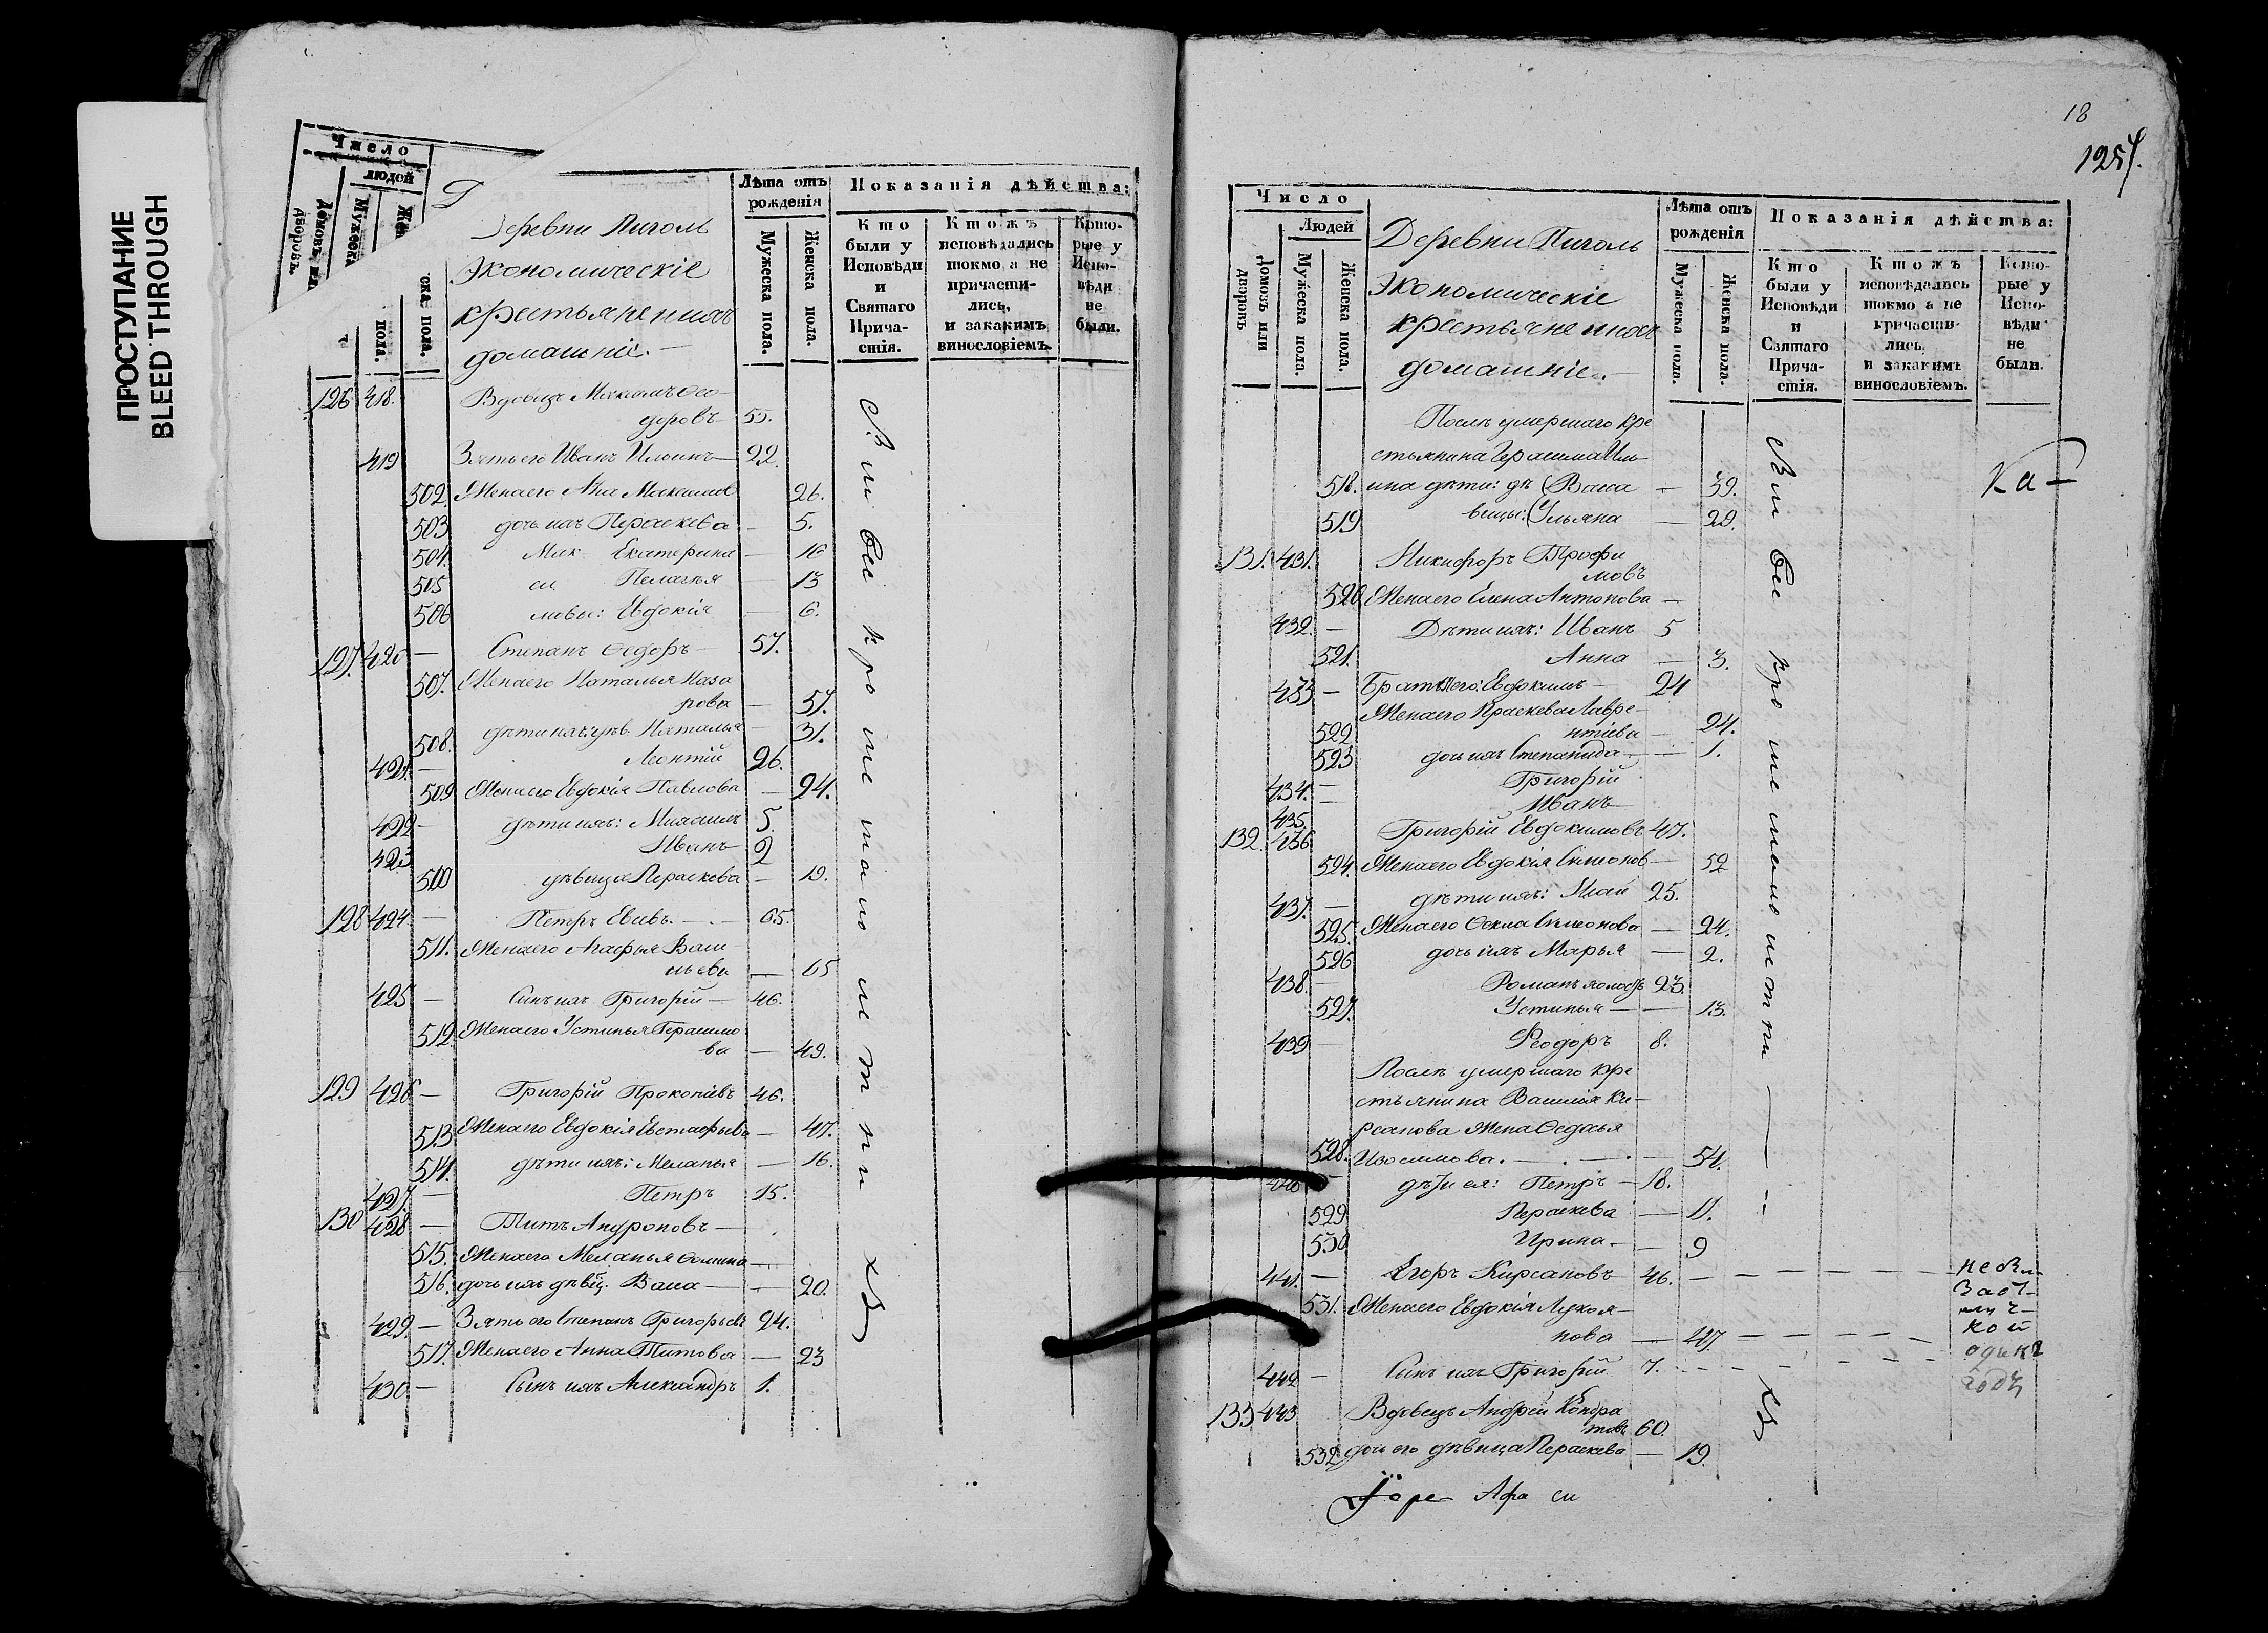 ПРОСТУПАНИЕ
BLEED THROUGH
Число
людей
Мужеска
пола.
ска пола.
Деревни Пиголь
Экономическіе
крестьяне и ихъ
домашніе.
Лѣта отъ
рожденія
Мужеска пола.
Женска пола.
Показанія дѣйства:
Кто
были у
Исповѣди
и
Святаго
Прича-
стія.
Ктожъ
исповѣдались
токмо а не
причасти-
лись,
и закакимъ
винословіемъ.
Кото-
рые у
Испо-
вѣди
не
были.
126 418. Вдовецъ Максимъ Ѳео-
доровъ 55.
419 Зять его Иванъ Ильинъ 22.
502. Жена его Анна Максимов 26.
503 дочь ихъ Параскева 5.
504. Мак Екатерина 16
505 си Пелагея 13
506 мовы: Евдокія 6.
127. 420 Степанъ Ѳедоръ 57.
507. Жена его Наталья Наза
рова 57.
508. дѣти ихъ: дѣв. Наталья 31.
421. Леонтій 26.
509 Жена его Евдокія Павлова 24.
422 дѣти ихъ: Михаилъ 5.
423 Иванъ 2
510 дѣвица Параскева 19.
128 424 Петръ Евсѣвъ. 65.
511. Жена его Агафья Васи-
льева 65
425 Сынъ ихъ Григорій 46.
512. Жена его Устинья Герасимо
ва 49.
129 426 Григорій Прокопіевъ 46.
513. Жена его Евдокія Евстафьева 47.
514. дѣти ихъ: Меланья 16.
427. Петръ 15.
130 428 Титъ Андроновъ
515. Жена его Меланья Ѳомина
516. дочь ихъ дѣвиц. Васса 20.
429. Зять его Степанъ Григорьевъ 24.
517. Жена его Анна Титова 23
430 Сынъ ихъ Александръ 1.
Сіи все кроме малолетни хъ
18
1257.
Число
Людей
Домовъ или
дворовъ
Мужеска пола.
Женска пола.
Деревни Пиголь
Экономическіе
крестьяне и ихъ
домашніе.
Лѣта отъ
рожденія
Мужеска пола.
Женска пола.
Показанія дѣйства:
Кто
были у
Исповѣди
и
Святаго
Прича-
стія.
Ктожъ
исповѣдались
токмо а не
причасти-
лись,
и закакимъ
винословіемъ.
Кото-
рые у
Испо-
вѣди
не
были.
Послѣ умершаго кре
стьянина Герасима Иль
518. ина дѣти: дѣ Васса 39.
519 вицы: Ульяна 29.
131. 431. Никифоръ Трофи
мовъ
520 Жена его Елена Антонова
432. Дѣти ихъ: Иванъ 5
521. Анна 3.
433 Братья его: Евдокимъ 24
Жена его Праскева Лавре-
522 нтіева 24.
523 дочь ихъ Степанида 1.
434. Григорій
435. Иванъ
132. 436 Григорій Евдокимовъ 47.
524. Жена его Евдокія Симеонов 52
437. дѣти ихъ: 25.
525. Жена его Ѳекла Симеонова 24.
526 дочь ихъ Марья 2.
438. Романъ холостъ 23.
527. Устинья 13.
439 Ѳеодоръ 8.
Послѣ умершаго кре
стьянина Василія Ки-
рсанова жена Ѳедосья
528. Изосимова. 54.
440 дѣти ея: Петръ 18.
529. Параскева 11.
530 Ирина 9
441. Егоръ Кирсановъ 46.
531. Жена его Евдокія Лукоя-
нова 47.
442 Сынъ ихъ Григорій 7.
133 443 Вдовецъ Андрей Кондра
товъ 60.
532 дочь его дѣвица Параскева 19.
Сіи все кроме малолетни хъ
Ка-
одинъ
годъ
Афа си